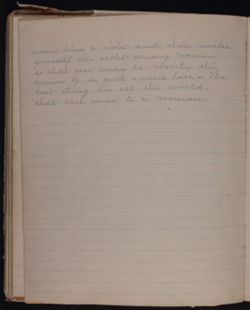 man likes a violet and then make
yourself the violet among women
so that you may be worthy the
honor of a good man's love - the
best thing in all the world,
that can come to a woman.